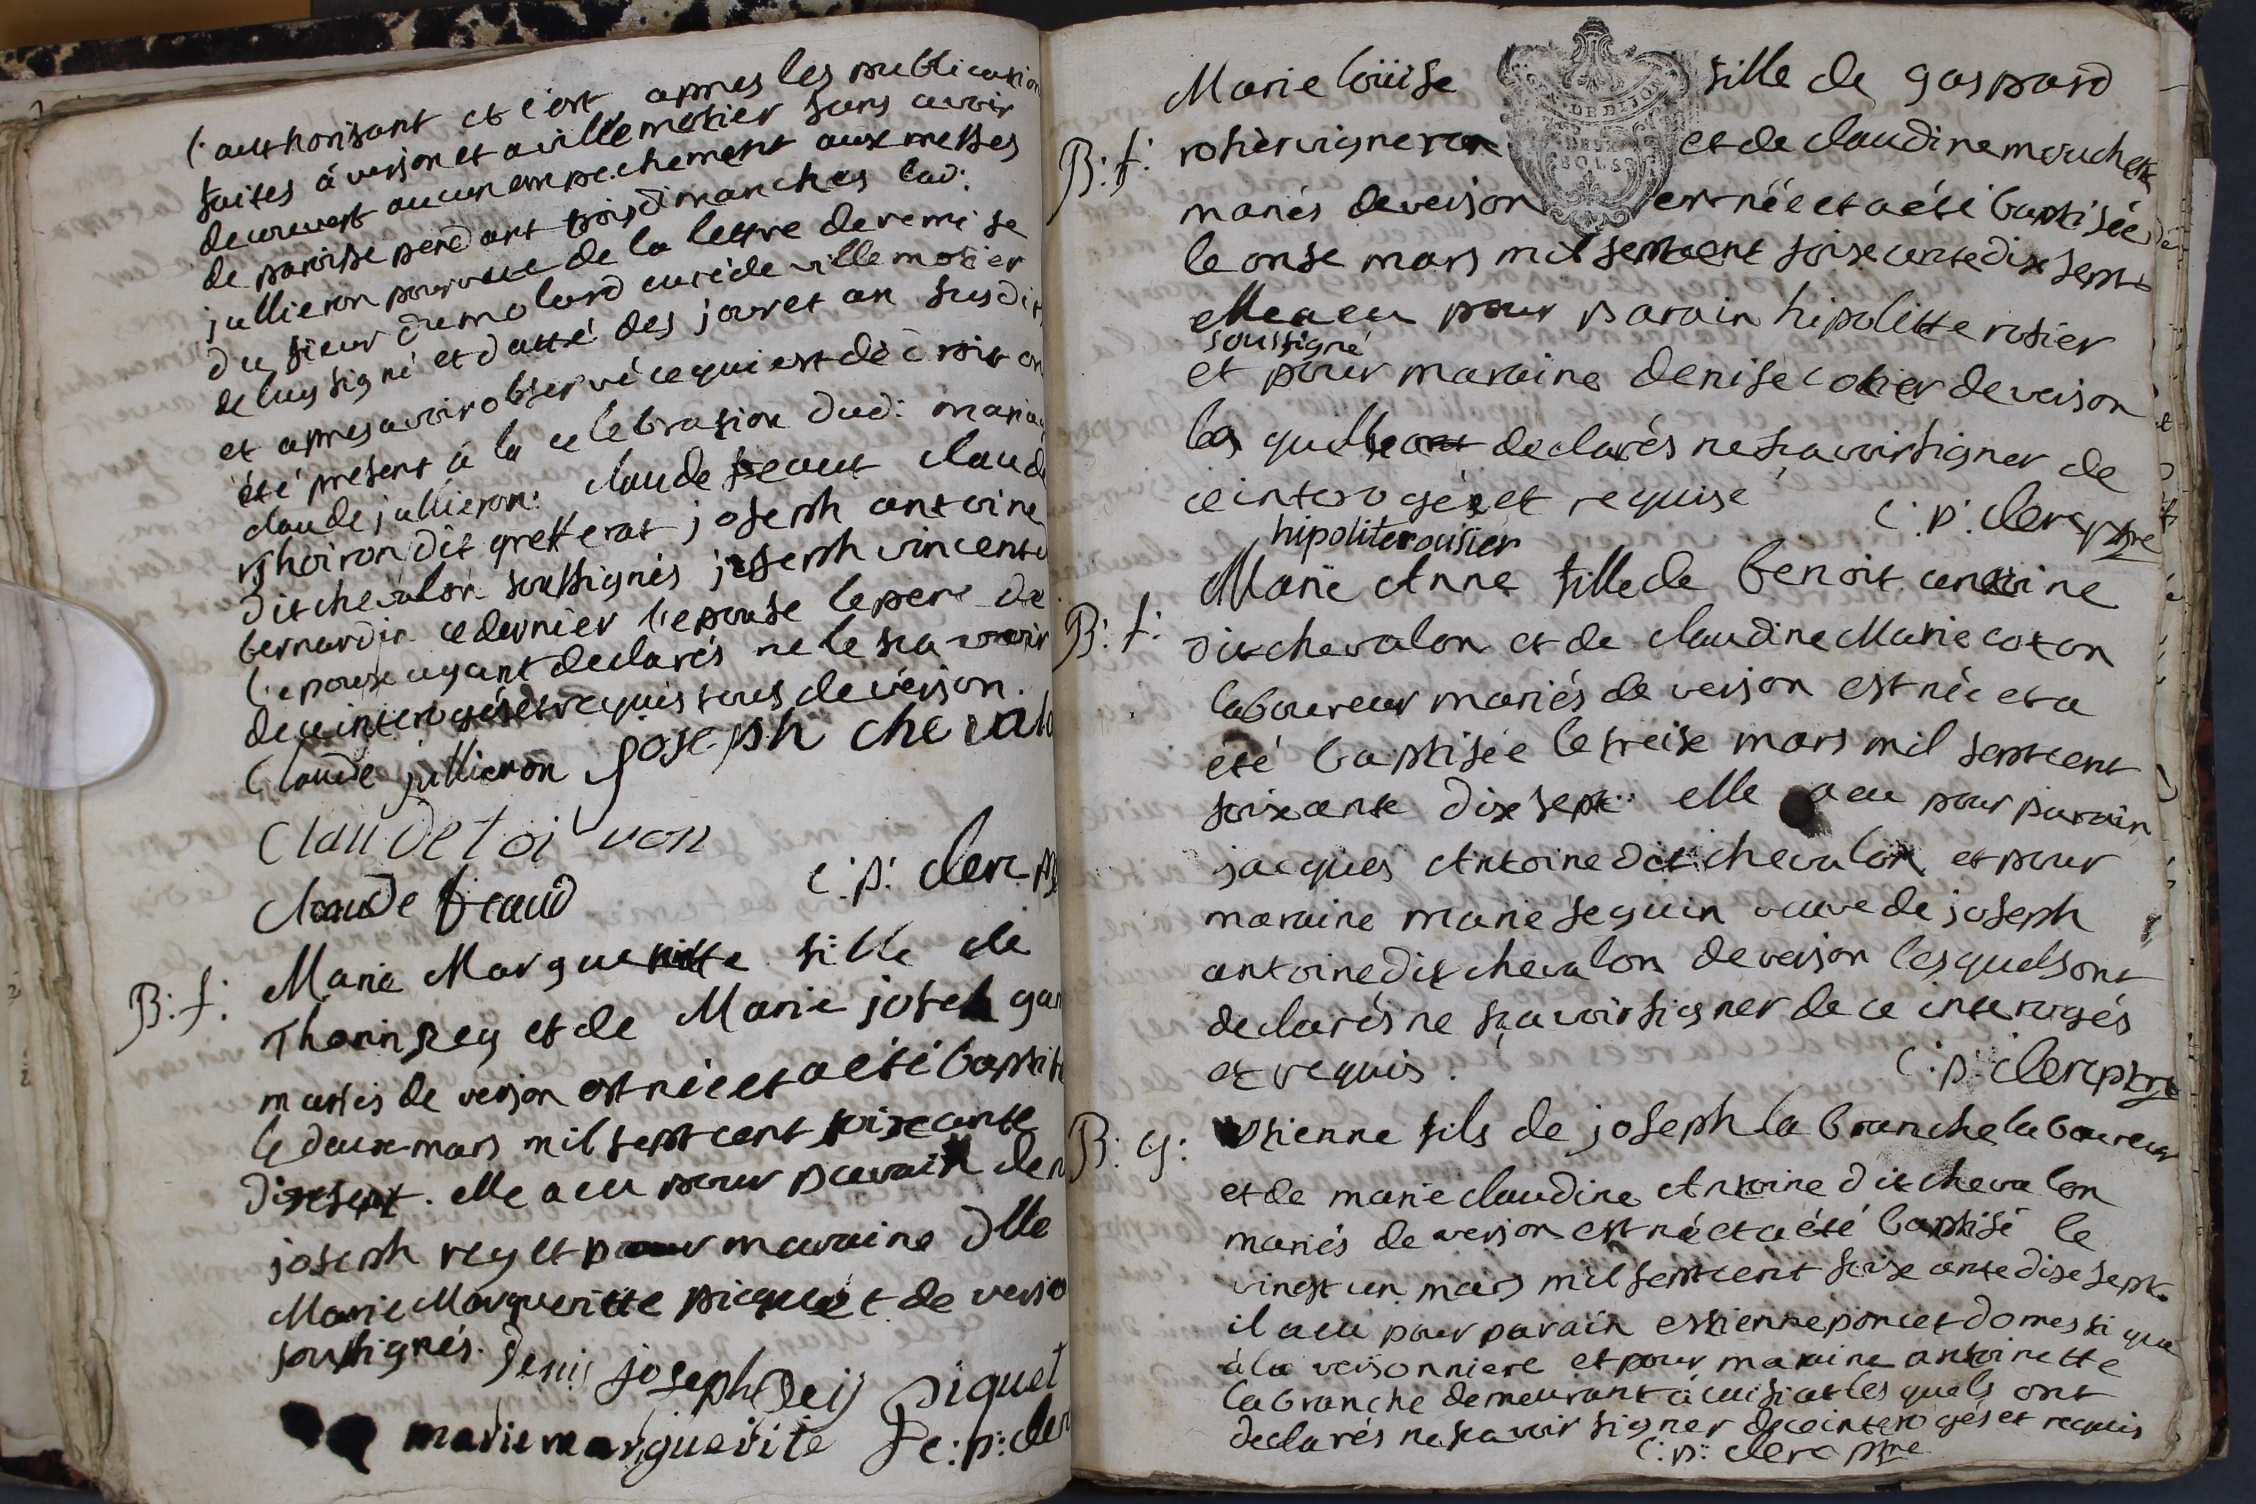 l'authorisant et c'est apres les publication
faites à verjon et a villemotier sans avoir
decouvert aucun empechement aux messes
de paroisse pendant trois dimanches lad:
jullieron pourvue de la lettre de remise
du sieur dumolard curé de villemotier
de luy signé et datté des jour et an susdit
et apres avoir observé ce qui est de droit on
été present à la celebration dud: mariag
claude jullieron: claude feaut claude
Thoiron dit gretterat joseph antoine
dit chevalon soussignés joseph vincent
bernardin ce dernier l'epouse le pere de
l'epouse ayant declarés ne le sçavoir
de ce interogés et requis tous de verjon.
Claude jullieron joseph cheval
Claude toiron
C: p: clerc p
Claude feaud
B: f: Marie Margueritte fille de
Thorin Rey et de Marie joseph gan
mariés de verjon est née et a été baptisé
le deux mars mil sept cent soixcante
dix sept. elle a eu pour parain den
joseph rey et pour maraine dlle
Marie Margueritte picquet de verjon
soussignés. Denis joseph Reij piquet
marie marguerite C: p: cler
Marie loüise fille de gaspard
DE DIJON
DEUX
SOLS
B: f: rosier vigneron et de claudine mouchette
mariés de verjon est née et a été baptisée
le onse mars mil sept cent soixcente dix sept
elle a eu pour parain hipolitte rosier
soussigné
et pour maraine denise rosier de verjon
la quelle declarés ne sçavoir signer de
ce interogée et requise C: p: clerc ptre
hipolite rousier
Marie Anne fille de benoit antoine
B: f: dit chevalon et de claudine Marie coton
laboureur mariés de verjon est née et a
été baptisée le treise mars mil sept cent
soixcante dix sept: elle a eu pour parain
jacques Antoine dit chevalon et pour
maraine marie seguin veuve de joseph
antoine dit chevalon de verjon lesquels ont
declarés ne sçavoir signer de ce interogés
et requis. C: p: clerc ptre
B: g: Estienne fils de joseph la branche laboureur
et de marie claudine Antoine dit chevalon
mariés de verjon est né et a été baptisé le
vingt un mars mil sept cent soixcante dix sept.
il a eu pour parain estienne poncet domestique
à la verjonniere et pour maraine antoinette
la branche demeurant à cuisiat les quels ont
declarés ne scavoir signer de ce interogés et requis
C: p: clerc ptre